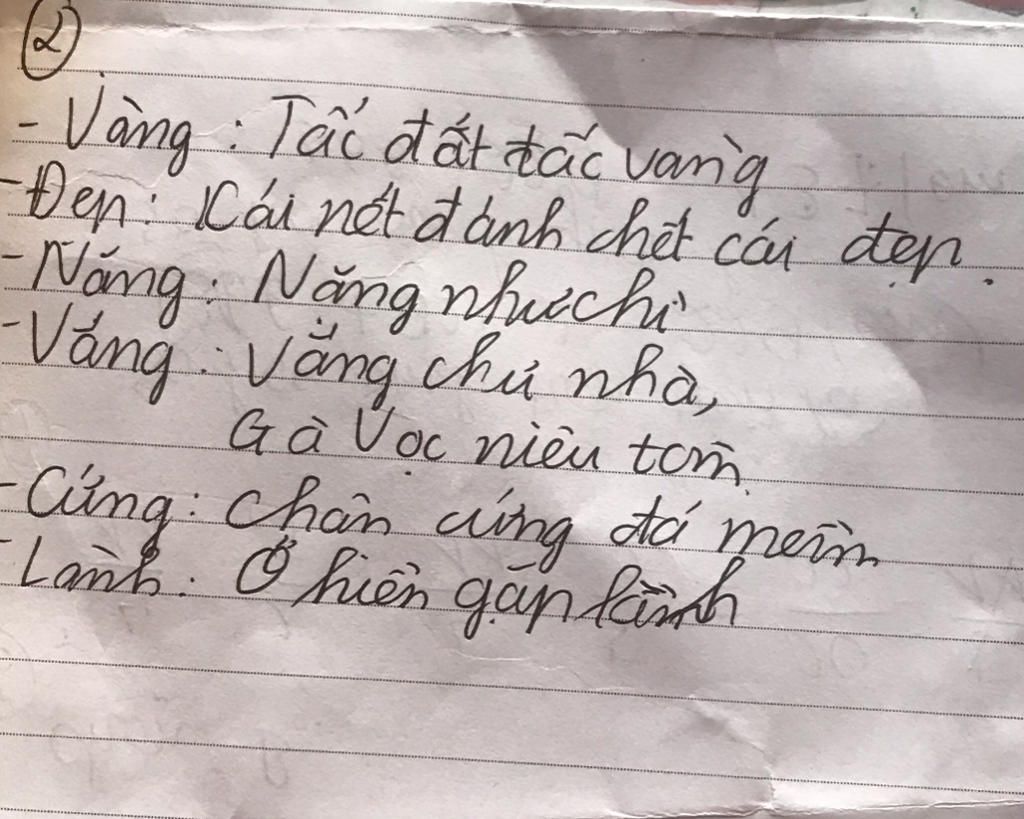 ②
- Vàng: Tấc đất tấc vàng
- Đẹp: Cái nết đánh chết cái đẹp.
- Nặng: Nặng như chì
- Vắng: Vắng chủ nhà,
Gà vọc niêu tôm
- Cứng: Chân cứng đá mềm
- Lành: Ở hiền gặp lành